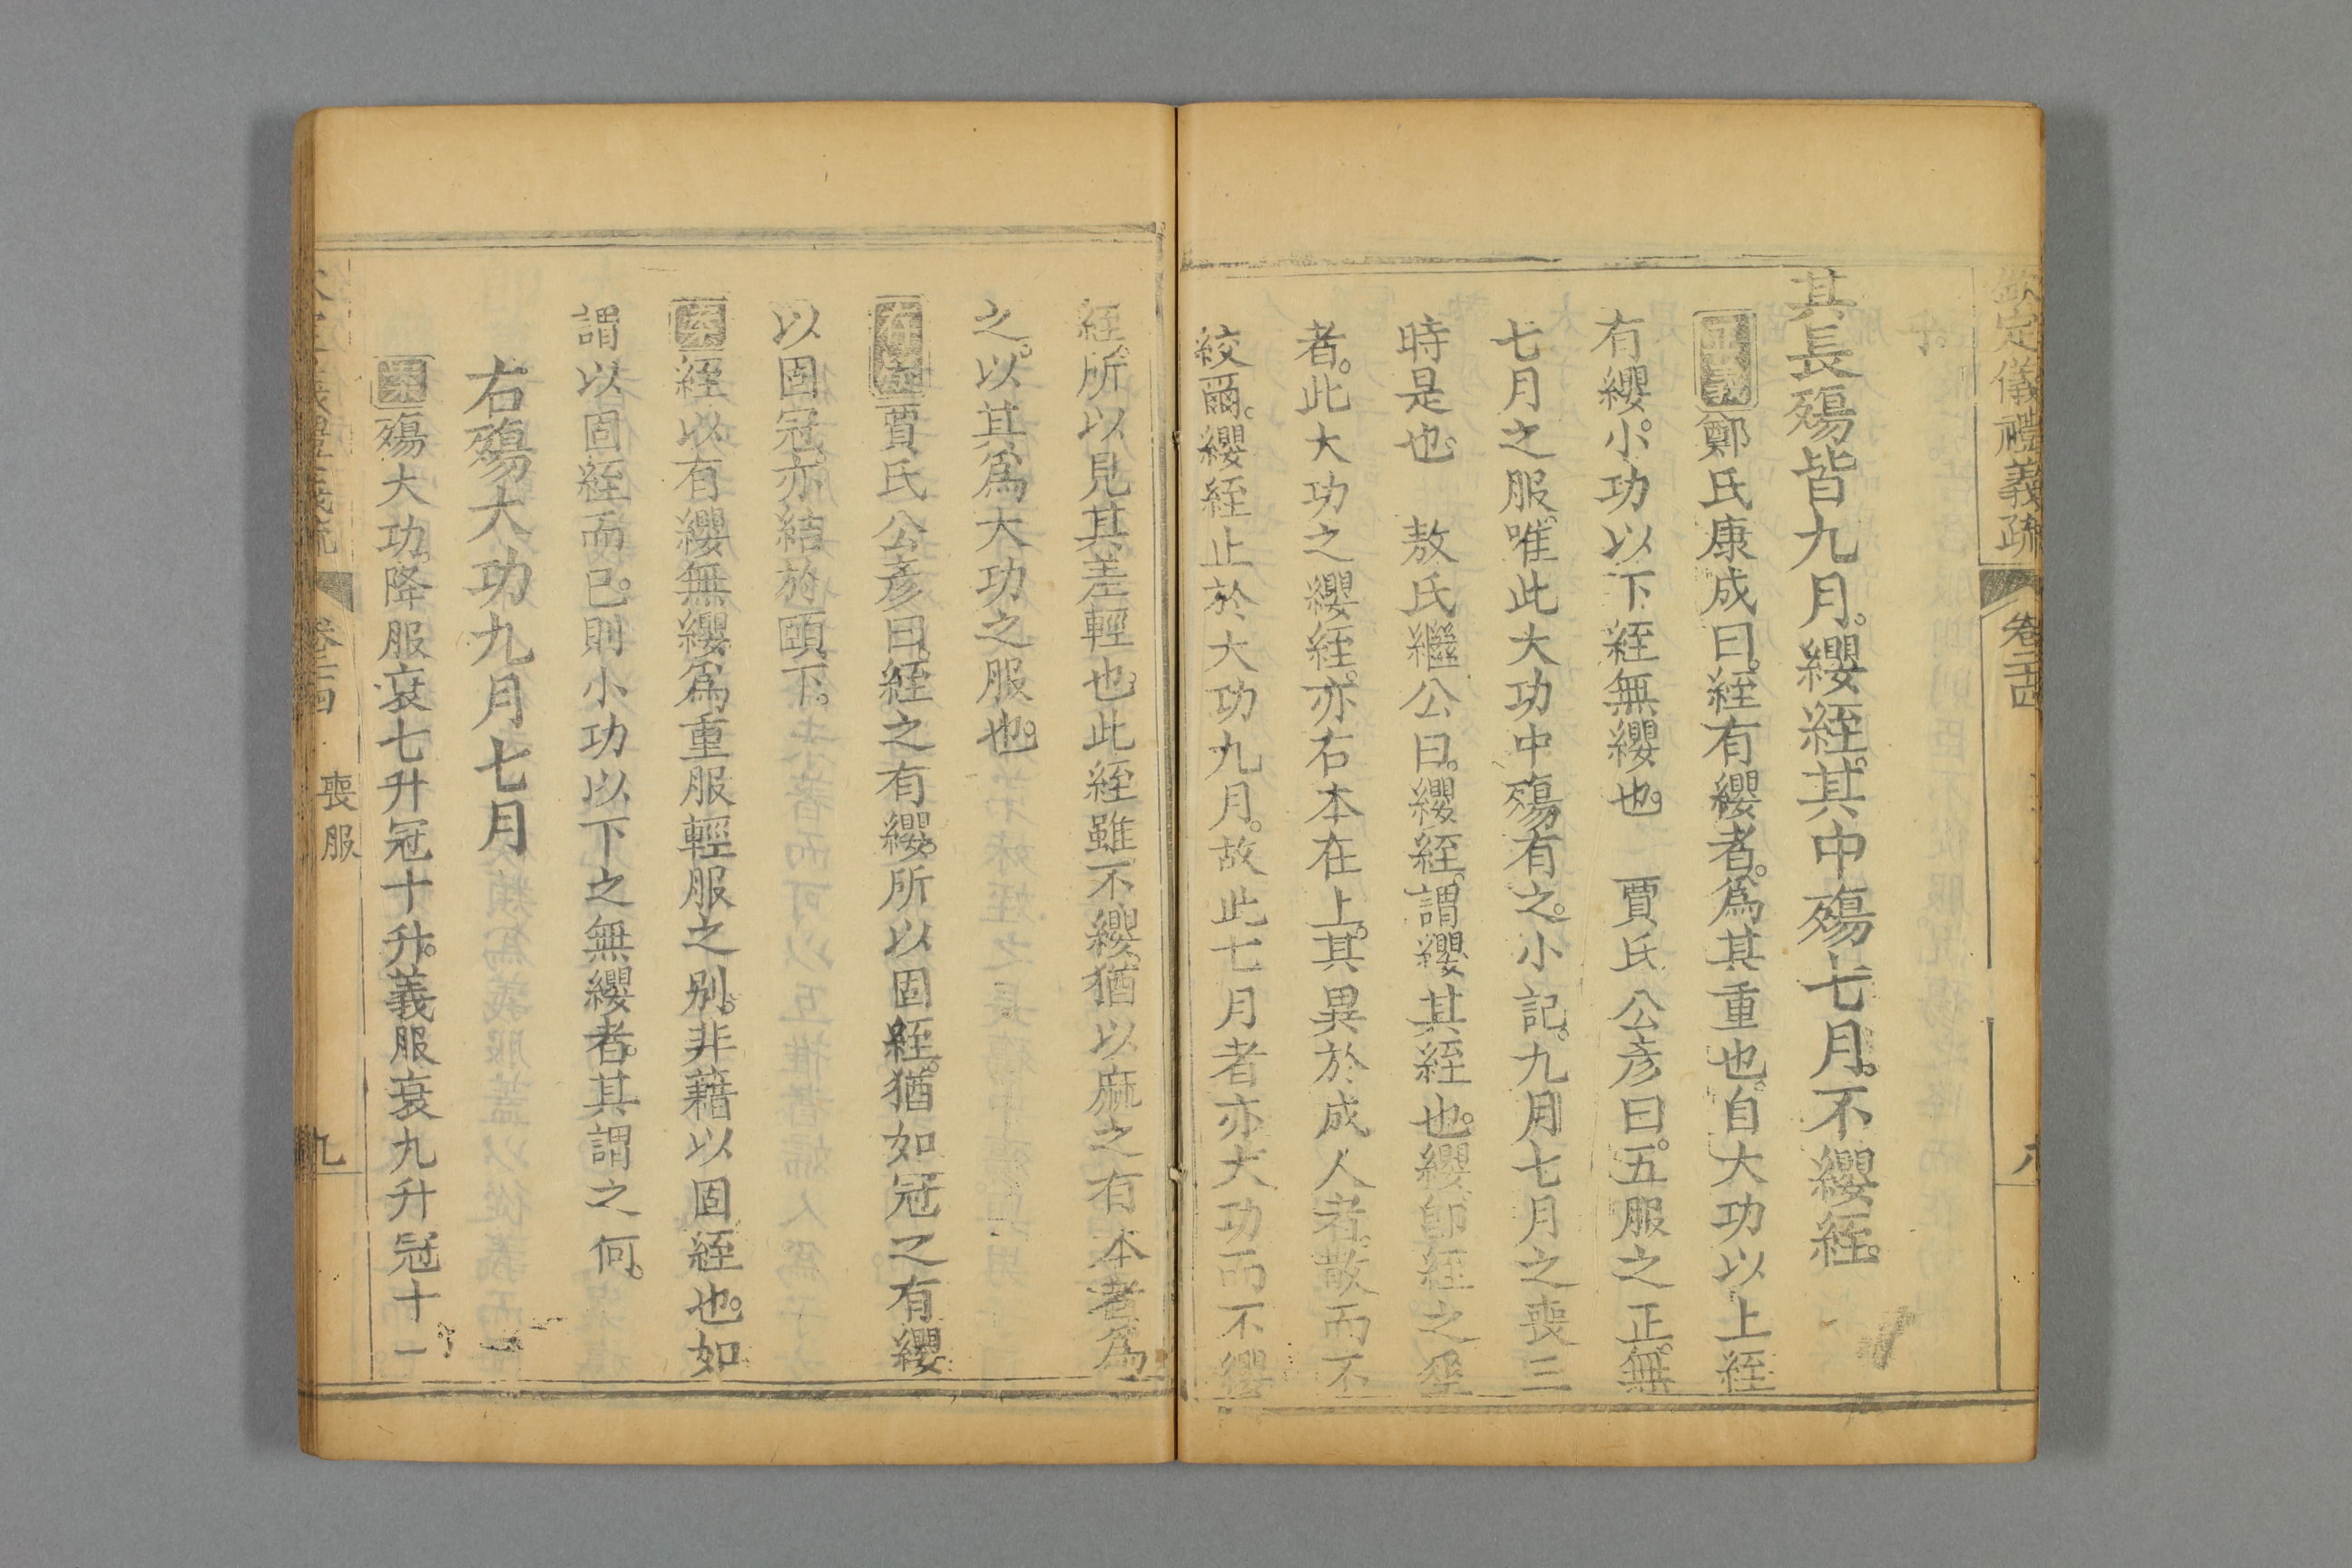 欽定儀禮義疏　卷二十四
其長殤皆九月。纓絰。其中殤七月。不纓絰。
正義鄭氏康成曰。絰有纓者。爲其重也。自大功以上絰
有纓。小功以下絰無纓也。　賈氏公彥曰。五服之正。無
七月之服。唯此大功中殤有之。小記。九月七月之喪三
時是也。　敖氏繼公曰。纓絰。謂纓其絰也。纓卽絰之
者。此大功之纓絰。亦右本在上。其異於成人者。散而不
絞爾。纓絰止於大功九月。故此七月者亦大功而不纓
絰。所以見其差輕也。此絰雖不纓。猶以麻之有本者爲
之。以其爲大功之服也。
存疑賈氏公彥曰。絰之有纓。所以固絰。猶如冠之有纓
以固冠。亦結於頤下。
案絰以有纓無纓爲重服輕服之別。非藉以固絰也。如
謂以固絰而已。則小功以下之無纓者。其謂之何。
右殤大功九月七月
案殤大功。降服衰七升冠十升。義服衰九升冠十一
卷二十四　喪服　九